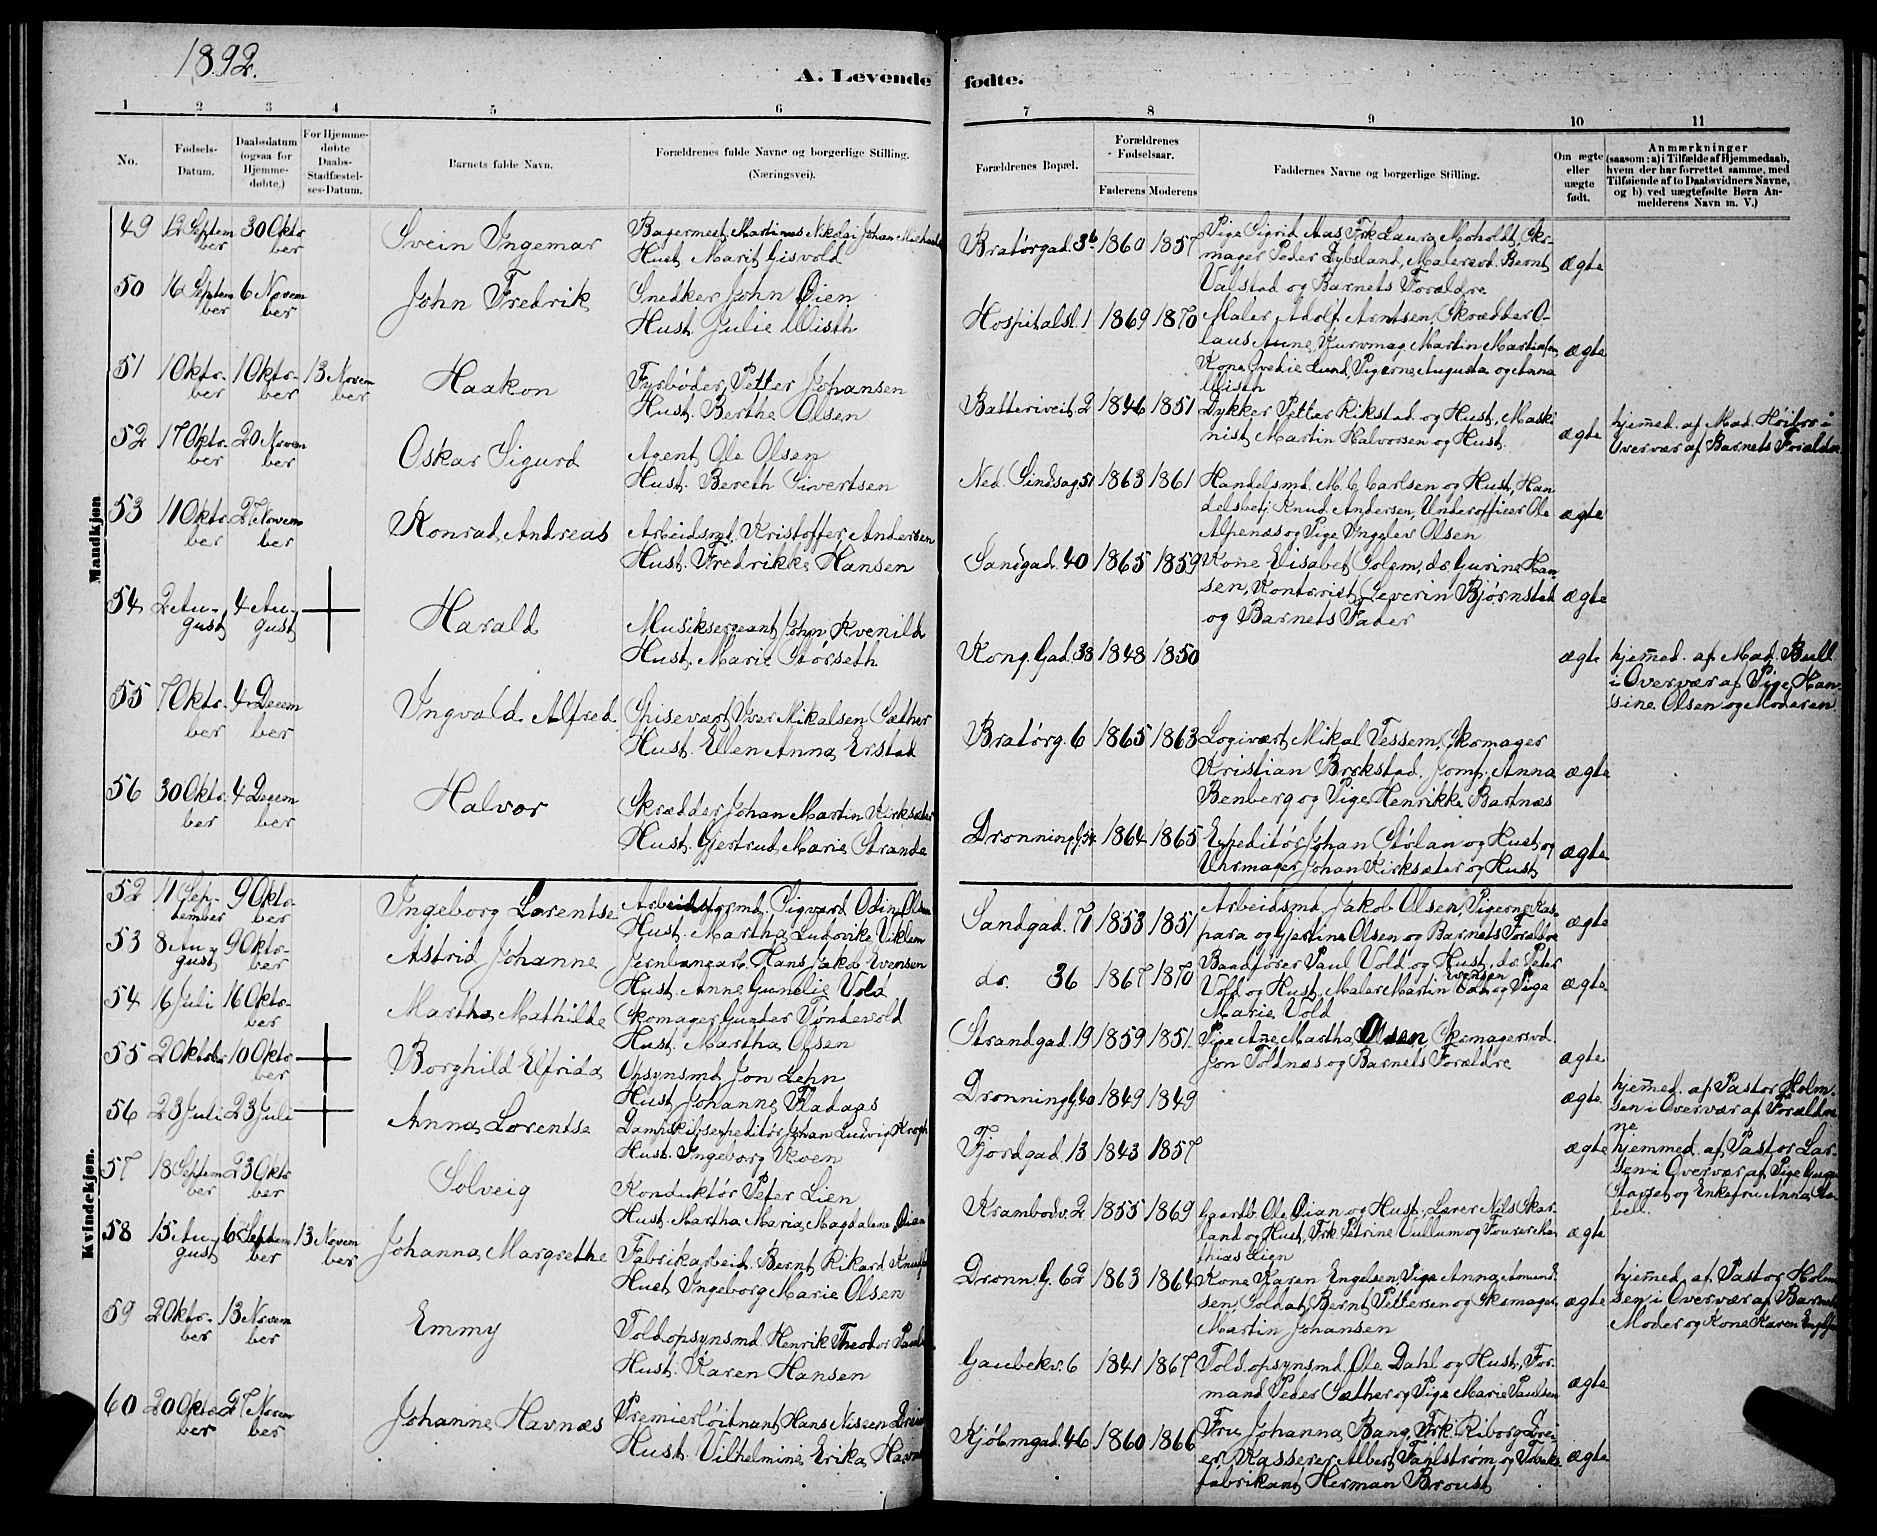 1892.
A. Levende fødte.
1 2 3 4 5 6 7 8 9 10 11
No.
Fødsels-Datum.
Daabsdatum (ogsaa for Hjemme-døbte.)
For Hjemme-døbte Daabs-Stadfæstel-ses-Datum.
Barnets fulde Navn.
Forældrenes fulde Navne og borgerlige Stilling. (Næringsvei).
Forældrenes Bopæl.
Forældrenes Fødselsaar.
Faderens Moderens
Faddernes Navne og borgerlige Stilling.
Om ægte eller uægte født.
Anmærkninger
(saasom: a) i Tilfælde af Hjemmedaab,
hvem der har forrettet samme, med
Tilføiende af to Daabsvidners Navne,
og b) ved uægtefødte Børn An-
melderens Navn m. V.)
Mandkjøn
49 12 September 30 Oktober Svein Ingemar
Bagermest. Martinus Nikolai Johan
Hust. Marit Gisvold
Bratørgad. 3b 1860 1857
Pige Sigrid Aas Frk Laura Moholdt, Sko-
mager Peder Dybsland, Malersvd. Bernt
Valstad og Barnets Forældre
ægte
50 16 September 6 November John Fredrik
Snedker John Øien
Hust. Julie Wisth
Hospitalsl. 1 1869 1870
Maler Adolf Arntsen, Skrædder O-
laus Aune, Kurvmag. Martin Martinsen
Kone Lund, Pigerne Augusta og Anna
Wisth
ægte
51 1 Oktober 1 Oktober 13 November Haakon
Fyrbøder Petter Johansen
Hust. Berthe Olsen
Batteriveit. 2 1846 1851
Dykker Petter Rikstad og Hust, Maski
nist Martin Halvorsen og Hust.
ægte
hjemmed. af Mad. Høibro i
Overvær af Barnets Forældre
52 17 Oktober 20 November Oskar Sigurd
Agent Ole Olsen
Hust. Bereth Sivertsen
Ned. 51 1863 1861
Handelsmd. M. C. Carlsen og Hust, Han
delsbetj. Knud Andersen, Underofficer Ole
Alpenæs og Pige Ingeler Olsen
ægte
53 11 Oktober 27 November Konrad Andreas
Arbeidsmd. Kristoffer Andersen
Hust. Fredrikke Hansen
Sandgad. 40 1865 1859
Kone Elisabet Solem, do. Gurine Han-
sen, Kontorist Severin Bjørnstad
og Barnets Fader
ægte
54 2 August 4 August Harald
Musiksergeant John Kvenild
Hust. Marie Størseth
Kong. Gad. 38 1848 1850
ægte
hjemmed. af Mad. Bull
i Overvær af Pige Han-
sine Olsen og Moderen.
55 7 Oktober 4 December Ingvald Alfred
Spisevært Iver Mikalsen Sæther
Hust. Ellen Anna Erstad
Bratørg. 6 1865 1863
Logivært Mikal Tessem, Skomager
Kristian Brekstad, Jomf. Anna
Benberg og Pige Henrikke Bartnæs
ægte
56 30 Oktober 4 December Halvor
Skrædder Johan Martin Kirksæter
Hust. Gjertrud Marie Strande
Dronningg. 54 1864 1865
Expeditør Johan Stølan og Hust. og
Uhrmager Johan Kirksæter og Hust
ægte
Kvindekjøn.
52 11 September 9 Oktober Ingeborg Lorentse
Arbeidsformd. Sigvard Odin Olsen
Hust. Martha Ludovike Viklem
Sandgad. 71 1853 1851
Arbeidsmd. Jakob Olsen, Pigerne Kas-
para og Gjertine Olsen og Barnets Forældre
ægte
53 8 August 9 Oktober Astrid Johanne
Jernbanearb. Hans Jakob Evensen
Hust. Anne Gunelie Vold
do. 36 1867 1870
Baadfører Paul Vold og Hust, do. Peter
Vold og Hust, Maler Martin Evensen og Pige
Marie Vold
ægte
54 16 Juli 16 Oktober Martha Mathilde
Skomager Gunder Tøndevold
Hust. Martha Olsen
Strandgad. 19 1859 1851
Pige Ane Martha Olsen, Skomagersvd.
Jon Foldnæs og Barnets Forældre
ægte
55 2 Oktober 10 Oktober Borghild Elfrida
Opsynsmd Jon Lehn
Hust. Johanne Fladaas
Dronningg. 40 1849 1849
ægte
hjemmed. af Pastor Holm-
sen i Overvær af Forældre
ne
56 23 Juli 23 Juli Anna Lorentse
Dampskibsexpeditør Johan Ludvig Krogh
Hust. Ingeborg Kven
Fjordgad. 13 1843 1857
ægte
hjemmed. af Pastor Lar-
sen i Overvær af Pige
og Enkefru Anna
57 18 September 23 Oktober Solveig
Konduktør Peter Lien
Hust. Martha Maria Magdalene Øien
Krambodv. 2 1855 1869
Gaardb. Ole Øian og Hust, Lærer Nils Skar-
land og Hust, Frk. Petrine Vullum og Fourer Ma-
thias Lien
ægte
58 15 August 6 September 13 November Johanna Margrethe
Fabrikarbeid. Bernt Rikard
Hust. Ingeborg Marie Olsen
Dronn. G. 62 1863 1864
Kone Karen Engelsen, Pige Anna Amund
sen, Soldat Bernt Pettersen og Skomager
Martin Johansen
ægte
hjemmed. af Pastor Holm
sen i Overvær af Barnets
Moder og Kone Karen Engelsen
59 2 Oktober 13 November Emmy
Toldopsynsmd. Henrik Theodor
Hust. Karen Hansen
Gaubekv. 6 1841 1867
Toldopsynsmd. Ole Dahl og Hust, For-
mand Peder Sæther og Pige Marie Paulsen
ægte
60 20 Oktober 27 November Johanne Havnæs
Premierløitnant Hans Nissen
Hust. Vilhelmine Erika
Kjøbmgad. 46 1860 1866
Fru Johanna Bang, Frk. Riborg Drei-
er, Kasserer Albert Fahlstrøm og Tobaks
fabrikant Herman Broust
ægte